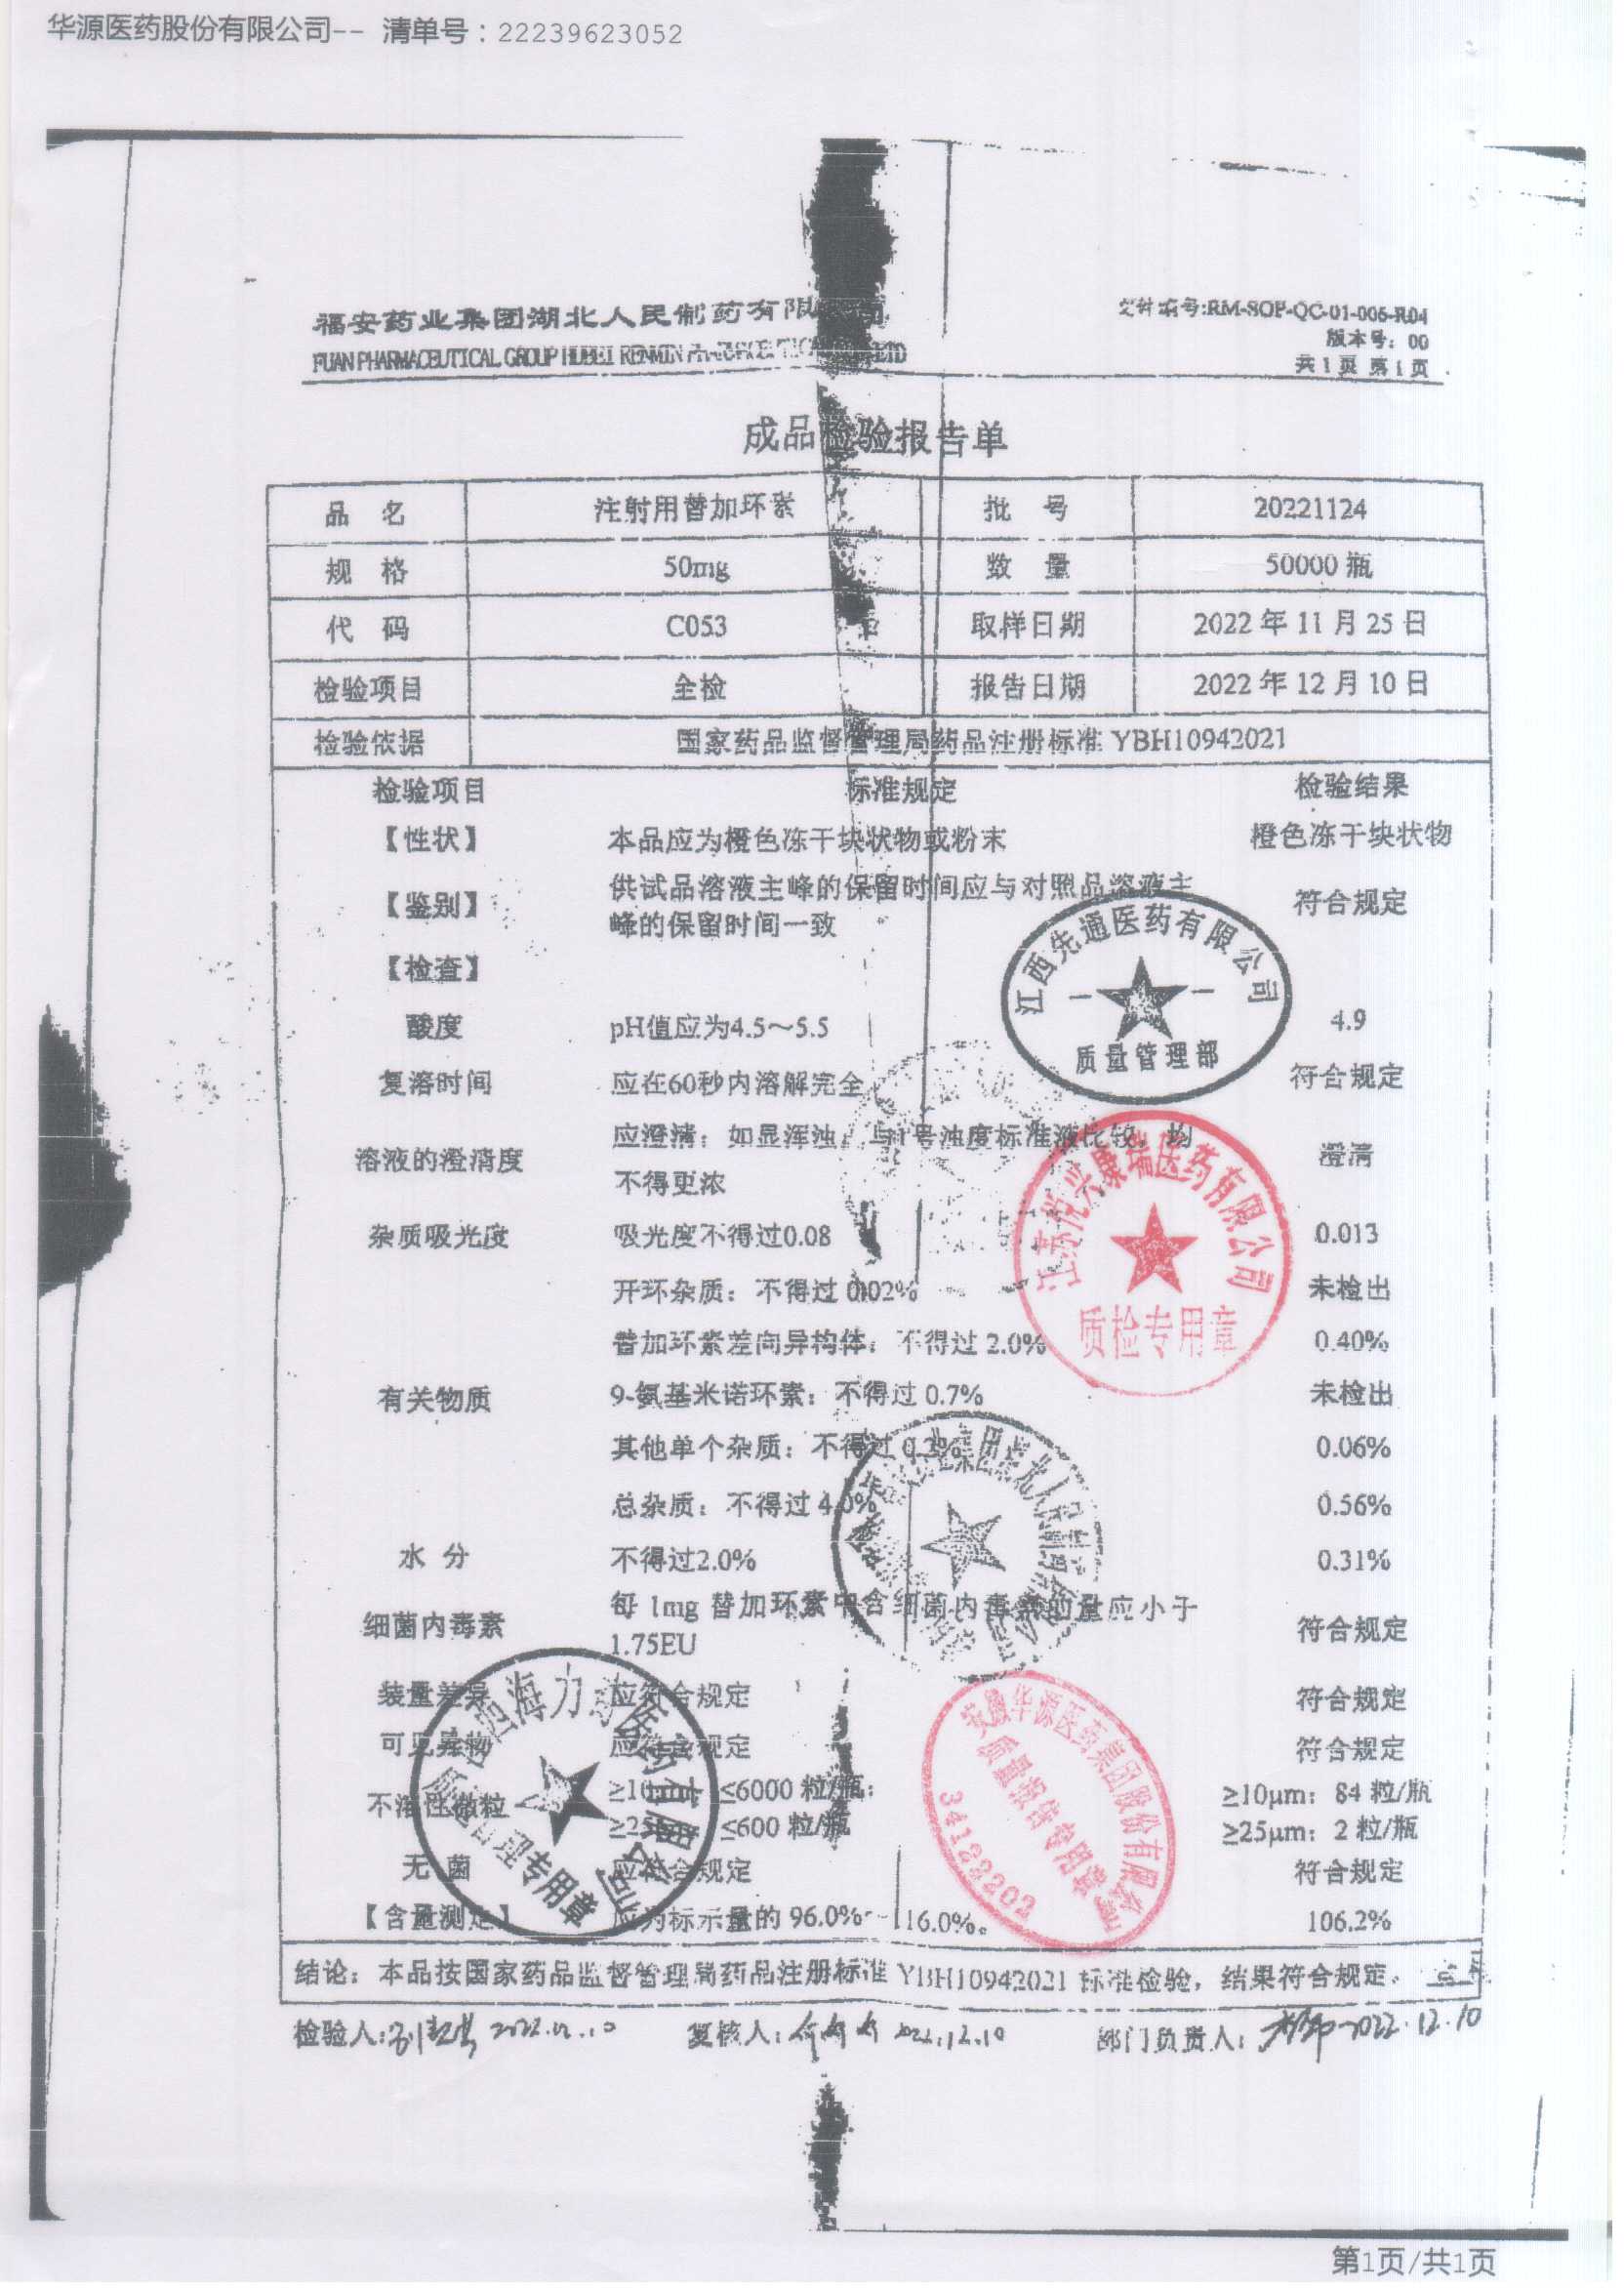 华源医药股份有限公司-- 清单号：22239623052
福安药业集团湖北人民制药有限
文件编号:RM-SOP-QC-01-006-R04
版本号：00
FUAN PHARMACEUTICAL GROUP HUBEI RENMIN
共1页 第1页
成品检验报告单
品 名 注射用替加环素 批 号 20221124
规 格 50mg 数 量 50000 瓶
代 码 C053 取样日期 2022 年 11 月 25 日
检验项目 全检 报告日期 2022 年 12 月 10 日
检验依据 国家药品监督管理局药品注册标准 YBH10942021
检验项目 标准规定 检验结果
【性状】 本品应为橙色冻干块状物或粉末 橙色冻干块状物
【鉴别】 供试品溶液主峰的保留时间应与对照品溶液主 符合规定
峰的保留时间一致
【检查】
酸度 pH值应为4.5～5.5 4.9
复溶时间 应在60秒内溶解完全 符合规定
溶液的澄清度 应澄清；如显浑浊，与1号浊度标准液比较，均 澄清
不得更浓
杂质吸光度 吸光度不得过0.08 0.013
开环杂质：不得过 0.02% 未检出
替加环素差向异构体：不得过 2.0% 0.40%
有关物质 9-氨基米诺环素：不得过 0.7% 未检出
其他单个杂质：不得过 0.2% 0.06%
总杂质：不得过 4.0% 0.56%
水 分 不得过2.0% 0.31%
细菌内毒素 每 1mg 替加环素中含细菌内毒素的量应小于 符合规定
1.75EU
装量差异 应符合规定 符合规定
可见异物 应符合规定 符合规定
不溶性微粒 ≥10 ≤6000 粒/瓶； ≥10μm：84 粒/瓶
≥25 ≤600 粒/瓶 ≥25μm：2 粒/瓶
无 菌 应符合规定 符合规定
【含量测定】 应为标示量的 96.0%~116.0%。 106.2%
结论：本品按国家药品监督管理局药品注册标准 YBH10942021 标准检验，结果符合规定。
检验人: 2022.12.10 复核人: 2022.12.10 部门负责人: 2022.12.10
江西先通医药有限公司
质量管理部
江苏悦兴康瑞医药有限公司
质检专用章
江西海力 医药有限公司
质量管理专用章
安徽华源医药集团股份有限公司
质量报告专用章
34122202
第1页/共1页